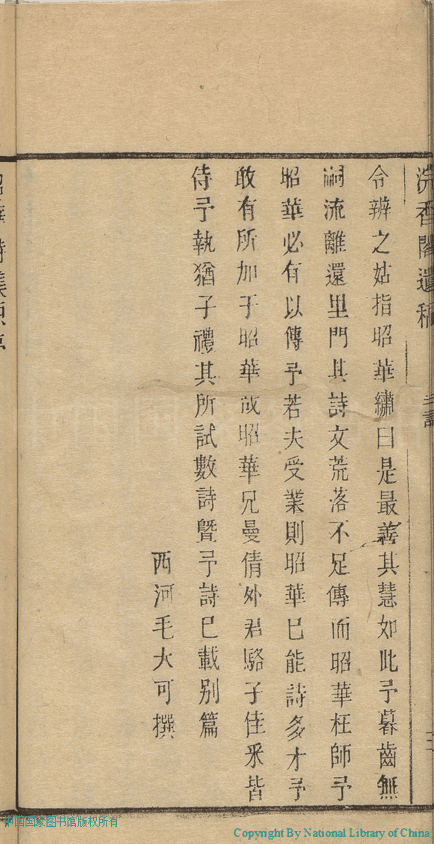 浣香閣遺稿
令辨之姑指昭華繡曰是最善其慧如此予暮齒無
嗣流離還里門其詩文荒落不足傳而昭華枉師予
昭華必有以傳予若夫受業則昭華已能詩多才予
敢有所加于昭華哉昭華兄曼倩外君駱子佳釆皆
侍予執猶子禮其所試數詩曁予詩已載別篇
西河毛大可撰
中国国家图书馆版权所有
Copyright By National Library of China